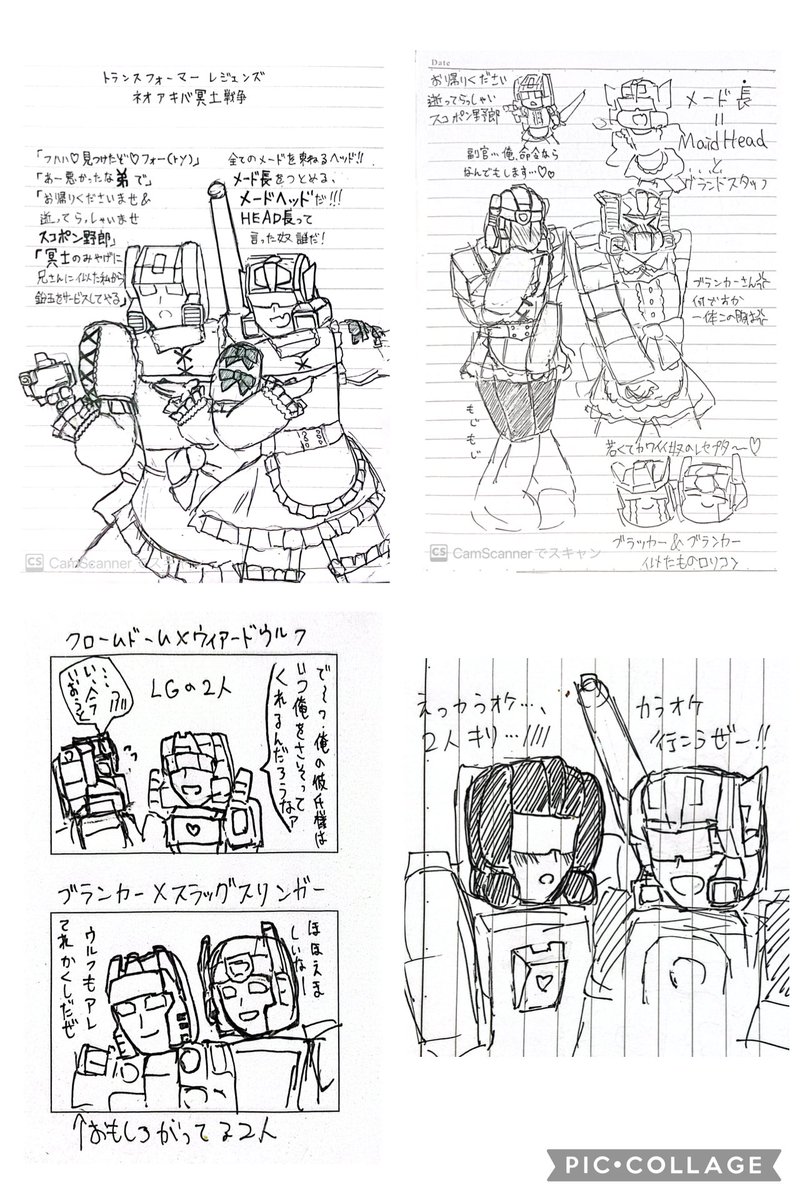 トランスフォーマー レジェンズ
ネオアキバ冥土戦争
「フハハ♡見つけたぞ♡フォー(ry)」
「あー悪かったな弟で」
「お帰りくださいませ&
逝ってらっしゃいませ
スコポン野郎」
「冥土のみやげに
兄さんに似た私から
鉛玉をサービスしてやる」
全てのメードを束ねるヘッド!!
メード長をつとめる、
メードヘッドだ!!!
HEAD長って
言った奴誰だ!
CS CamScannerでス
Date
お帰りください
逝ってらっしゃい
スコポン野郎
メード長
=
MaidHead
と
グランドスタッフ
副官…俺、命令なら
なんでもします…♡♡
ブランカーさん
何ですか
一体この胸は
もじもじ
若くてカワイイ奴のレセプター〜♡
ブラッカー&ブランカー
似たものロリコン
CS CamScannerでスキャン
クロームドーム×ウィアードウルフ
LGの2人
で〜っ、俺の彼氏様は
いつ俺をさそって
くれるんだろうなァ
ブランカー×スラッグスリンガー
ほほえま
しいなー
ウルフもアレ
てれかくしだぜ
↑おもしろがってる2人
えっカラオケ…、
2人キリ…////
カラオケ
行こうぜー!!
PIC•COLLAGE